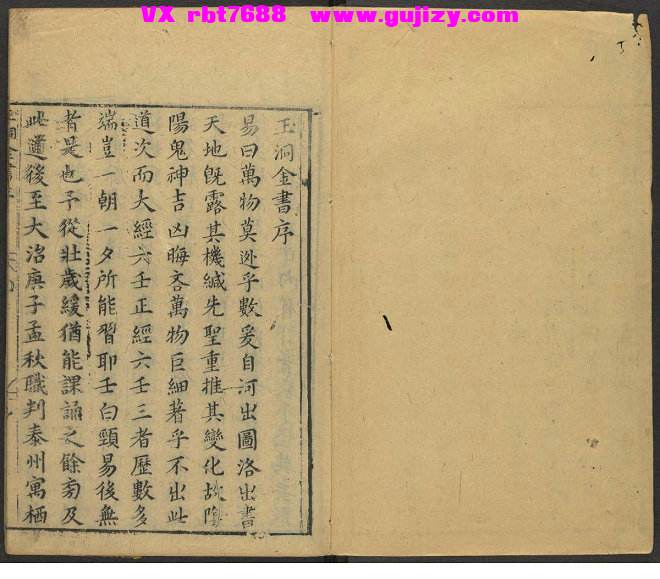 VX rbt7688 www.gujizy.com
玉洞金書序
易曰萬物莫逃乎數爰自河出圖洛出書
天地旣露其機緘先聖重推其變化故陰
陽鬼神吉凶晦吝萬物巨細著乎不出此
道次而大經六壬正經六壬三者歷數多
端豈一朝一夕所能習耶壬白頸易後無
者是也予從壯歲緩猶能課誦之餘旁及
此道後至大治庚子孟秋職判泰州寓栖